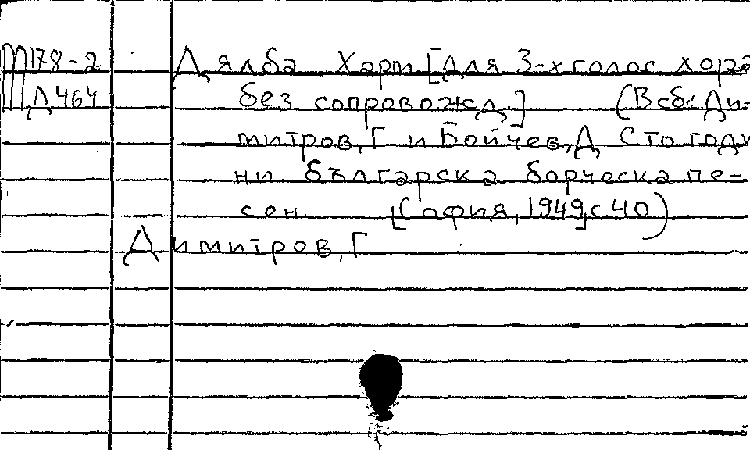 М178-2 Дялба Харт [Для 3-х голос. хора
Д464 без сопровожд.] (В сб.: Ди-
митров, Г и Бойчев, Д Сто годи
ни българска борческа пе-
сен [София, 1949, с 40)
Димитров, Г